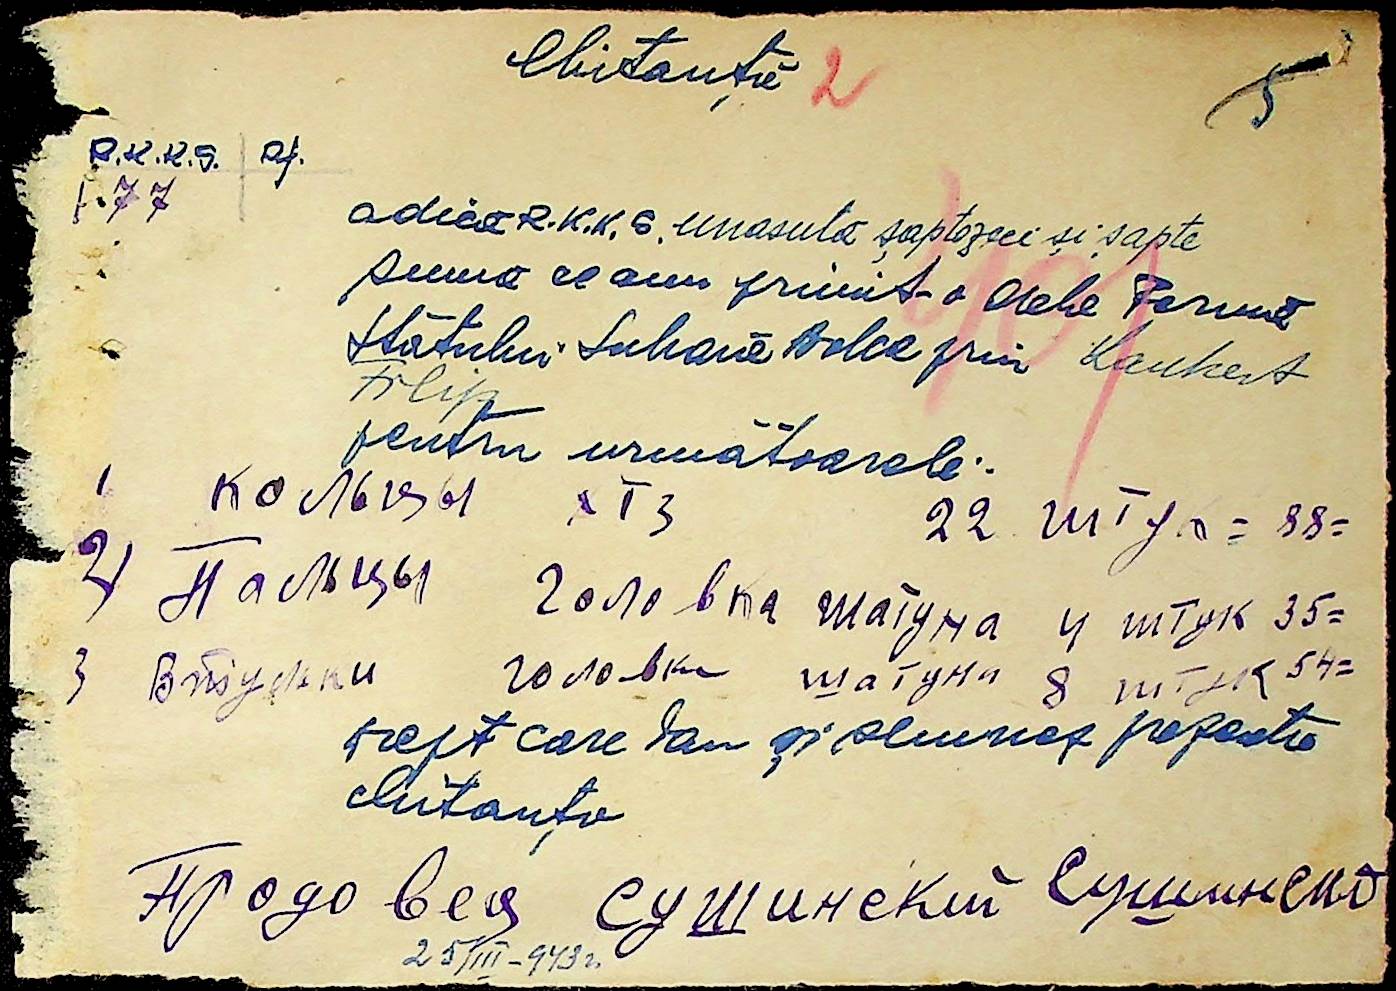 Chitanță 2
5
R.K.K.S. Rf.
177
adică R.K.K.S. unasută șaptezeci și șapte
Suma ce am primit-o dela Ferma
Statului prin
Filip
pentru următoarele:
401
1 Кольцы ХТЗ 22 штук = 88=
2) Пальцы головка шатуна 4 штук 35=
3 Втулки головки шатуна 8 штук 54=
drept care dau și semnez prezenta
chitanță
Продовец Сушинский Сушинский
25/III-943 г.